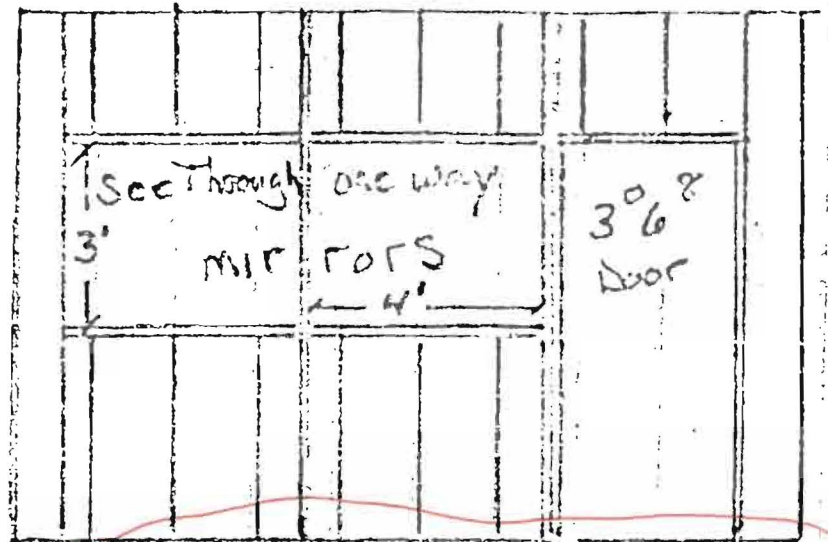 See Through one way
mirrors
3'
4'
3⁰6⁸
Door